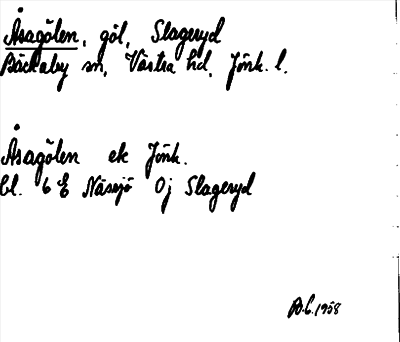 Åsagölen, göl, Slageryd
Bäckaby sn, Västra hd, Jönk. l.
Åsagölen ek Jönk.
bl. 6 E Nässjö Oj Slageryd
1958